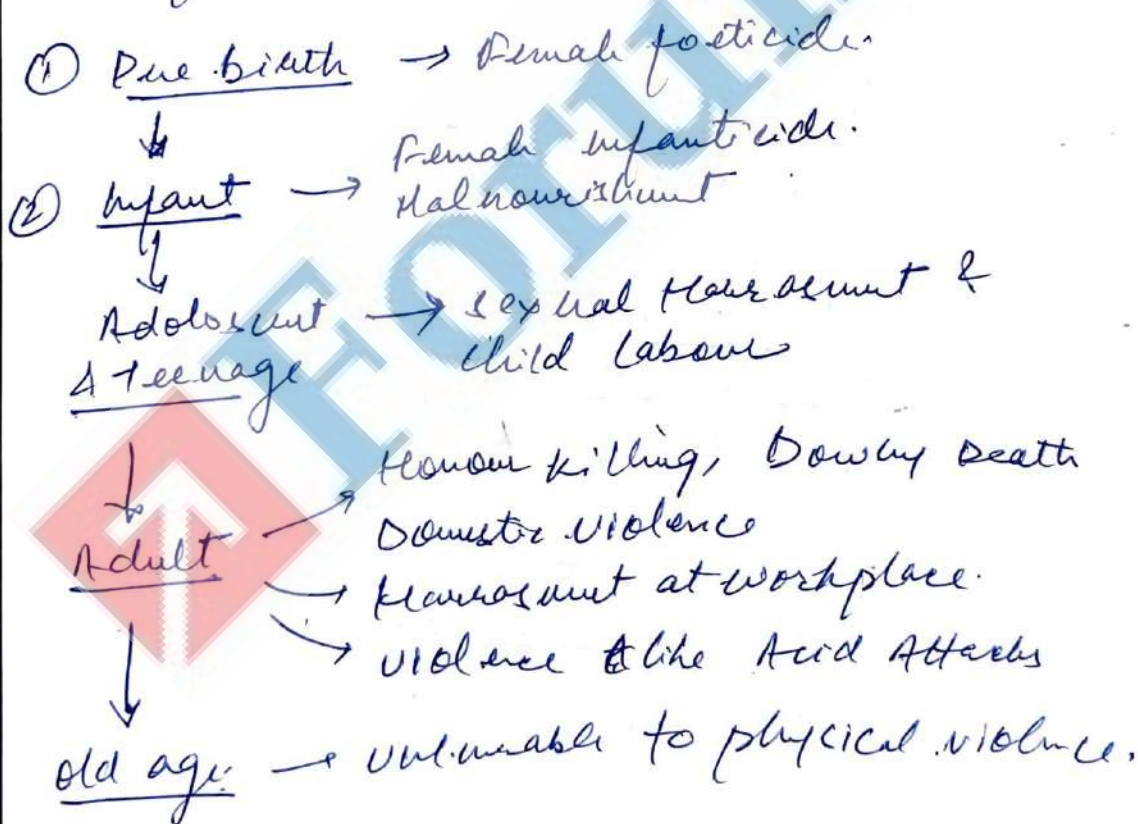 ① Pre birth → Female foeticide.
② Infant → Female infanticide.
Malnourishment
Adoloscent → Sexual Harrasment &
& Teenage Child Labour
Honour Killing, Dowry Death
Domestic Violence
Adult → Harrasment at workplace.
→ Violence like Acid Attacks
Old age. → Vulnerable to phycical violence.
Forum